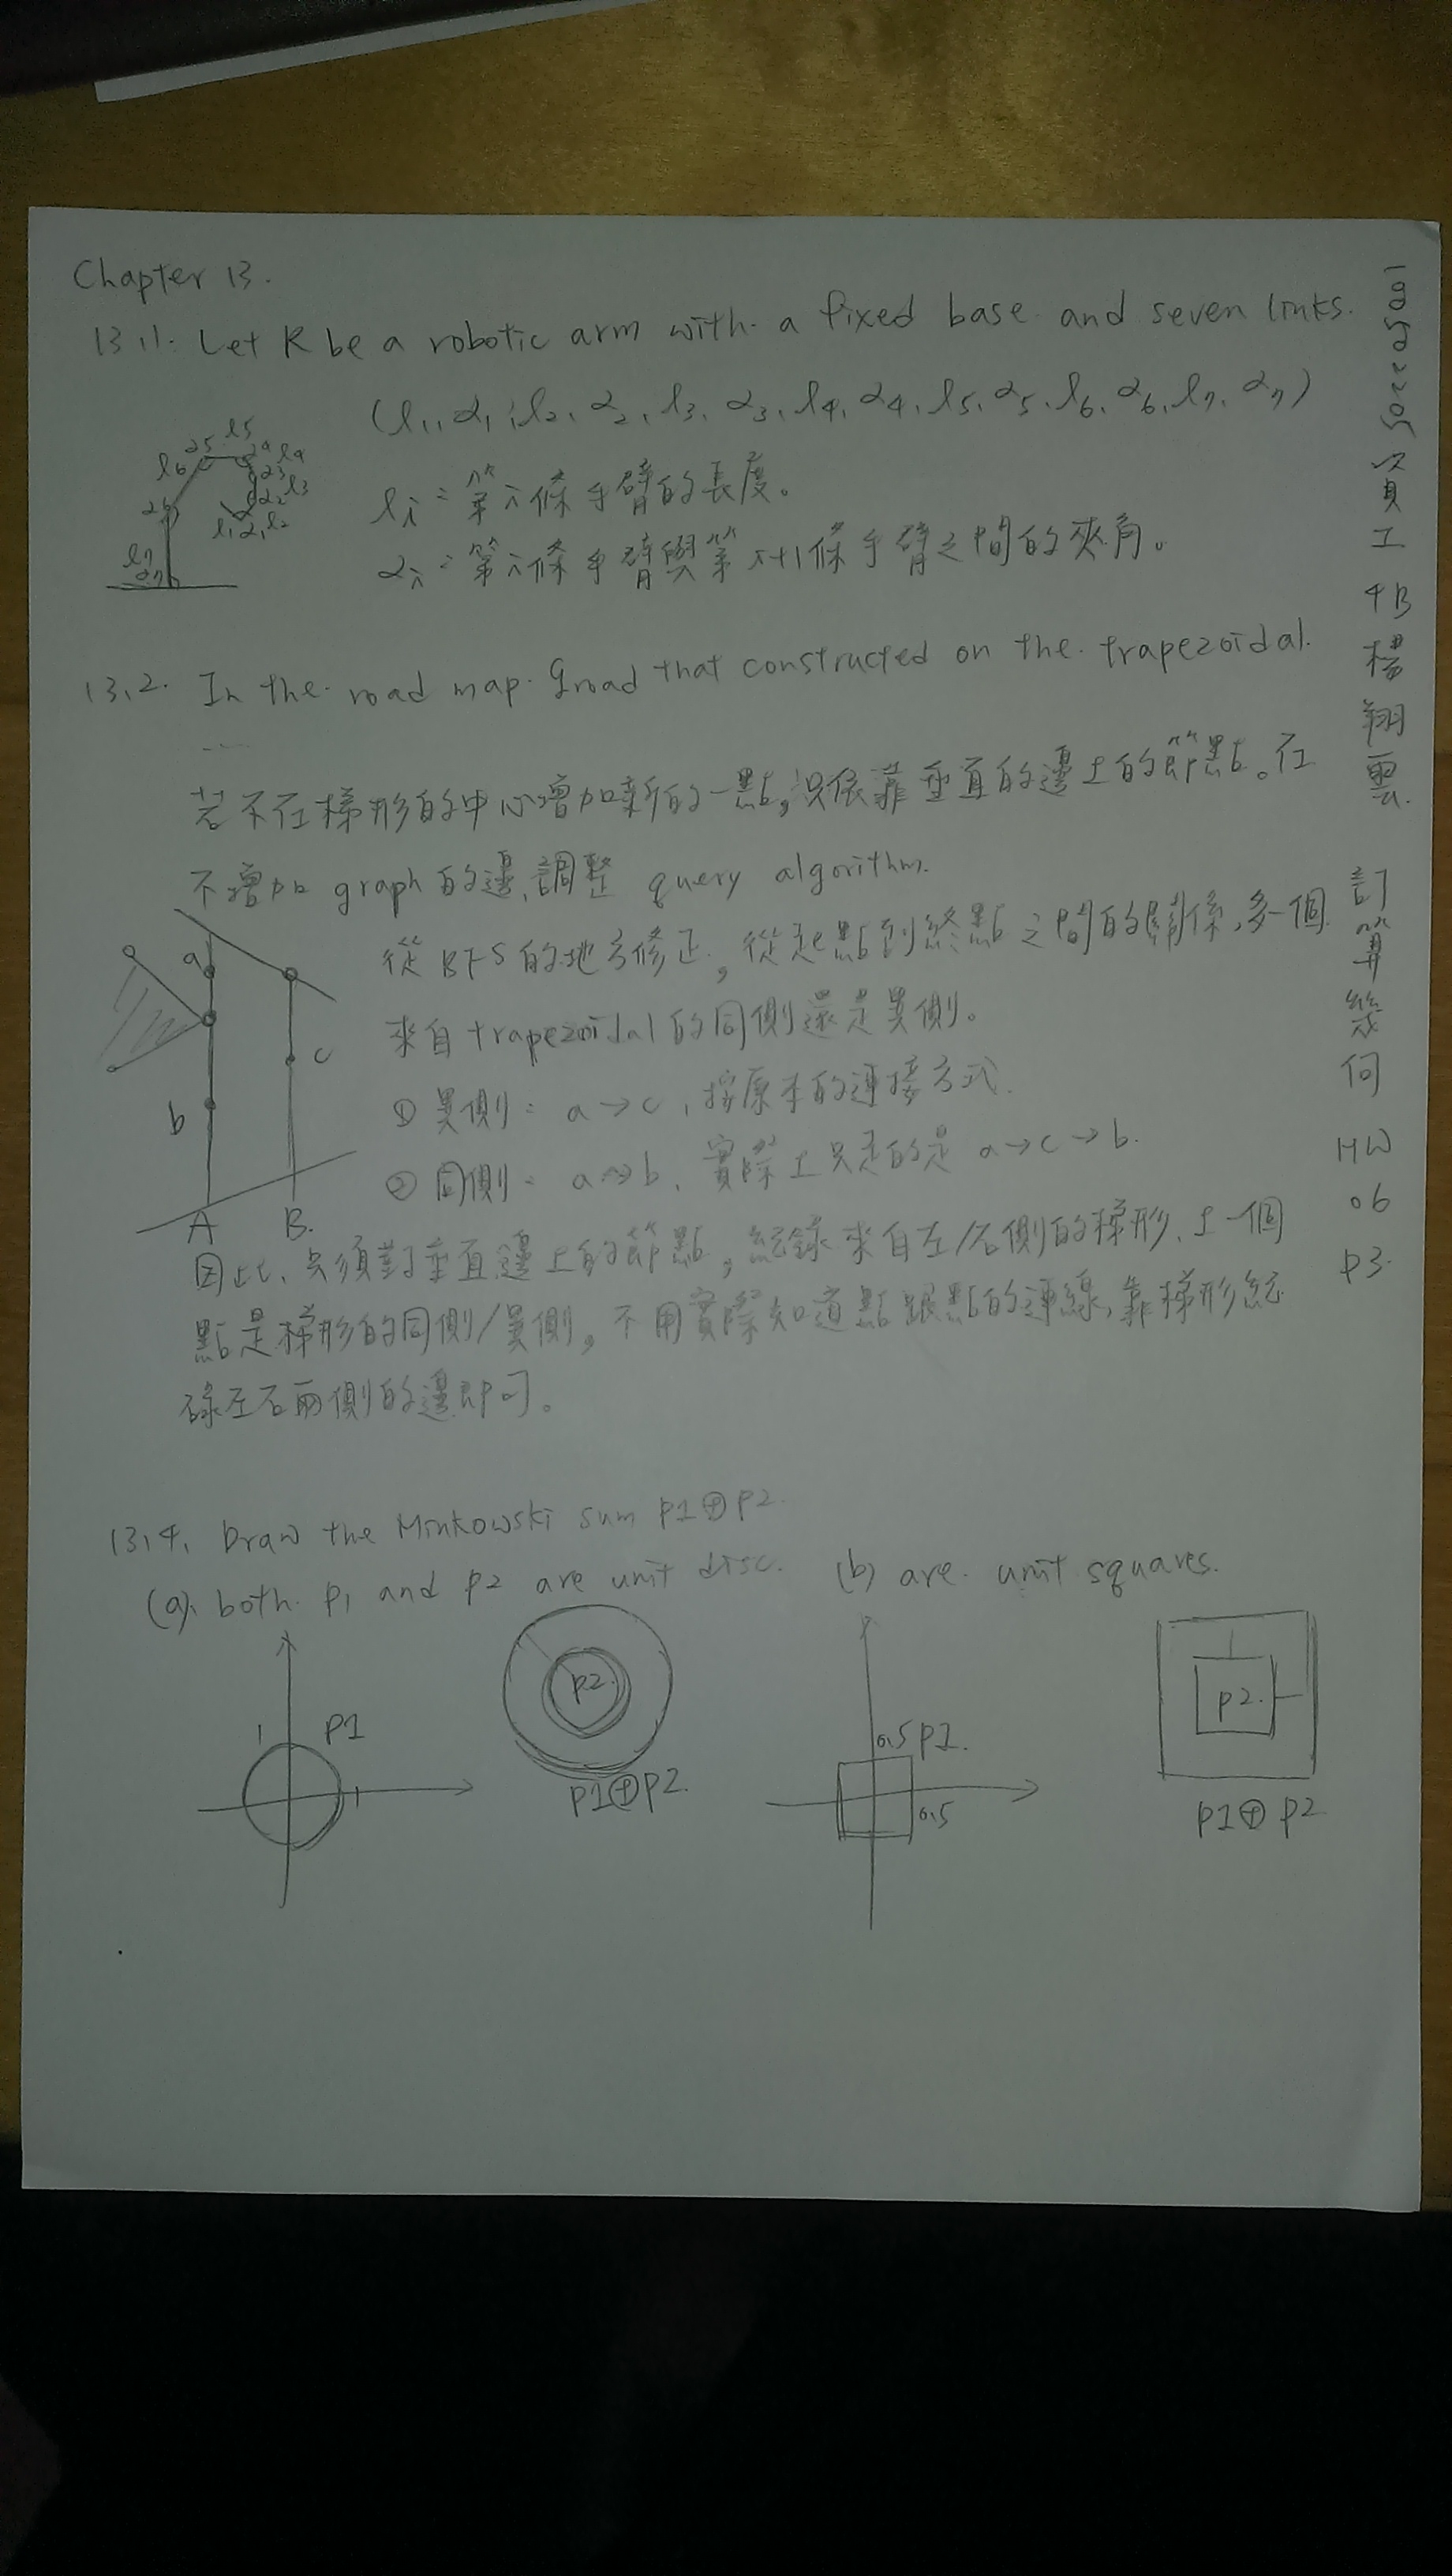 Chapter 13.
13.1. Let R be a robotic arm with a fixed base and seven links.
(l1, α1, l2, α2, l3, α3, l4, α4, l5, α5, l6, α6, l7, α7)
li = 第i條手臂的長度。
αi = 第i條手臂與第i+1條手臂之間的夾角。
l7
α7
l6
α5
l5
13.2. In the road map Groad that constructed on the trapezoidal.
...
若不在梯形的中心增加新的一點,只依靠垂直的邊上的節點。在
不增加graph的邊,調整 query algorithm.
從BFS的地方修正,從起點到終點之間的關係,多一個
來自trapezoidal的同側還是異側。
① 異側 = a→c, 按原本的連接方式.
② 同側 = a→b, 實際上只走的是 a→c→b.
a
b
c
A
B.
因此、只須對垂直邊上的節點,紀錄來自左/右側的梯形、上一個
點是梯形的同側/異側,不用實際知道點跟點的連線,靠梯形紀
碌左右兩側的邊即可。
13.4. Draw the Minkowski sum P1⊕P2.
(a). both P1 and P2 are unit disc. (b) are unit squares.
1
P1
1
P2
P1⊕P2.
0.5 P1.
0.5
P2.
P1⊕P2
資工
4B
楊翔雲.
計算幾何
HW
06
P3.